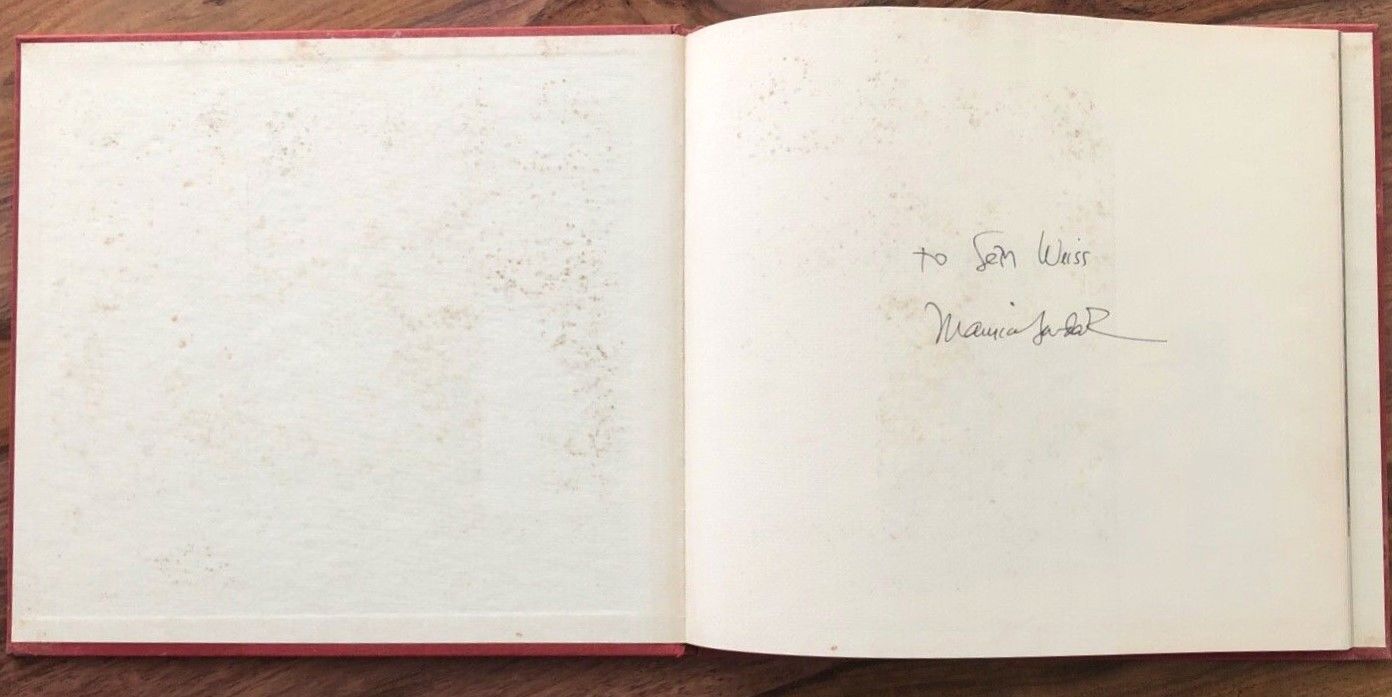 to Weiss
Maurice Sendak